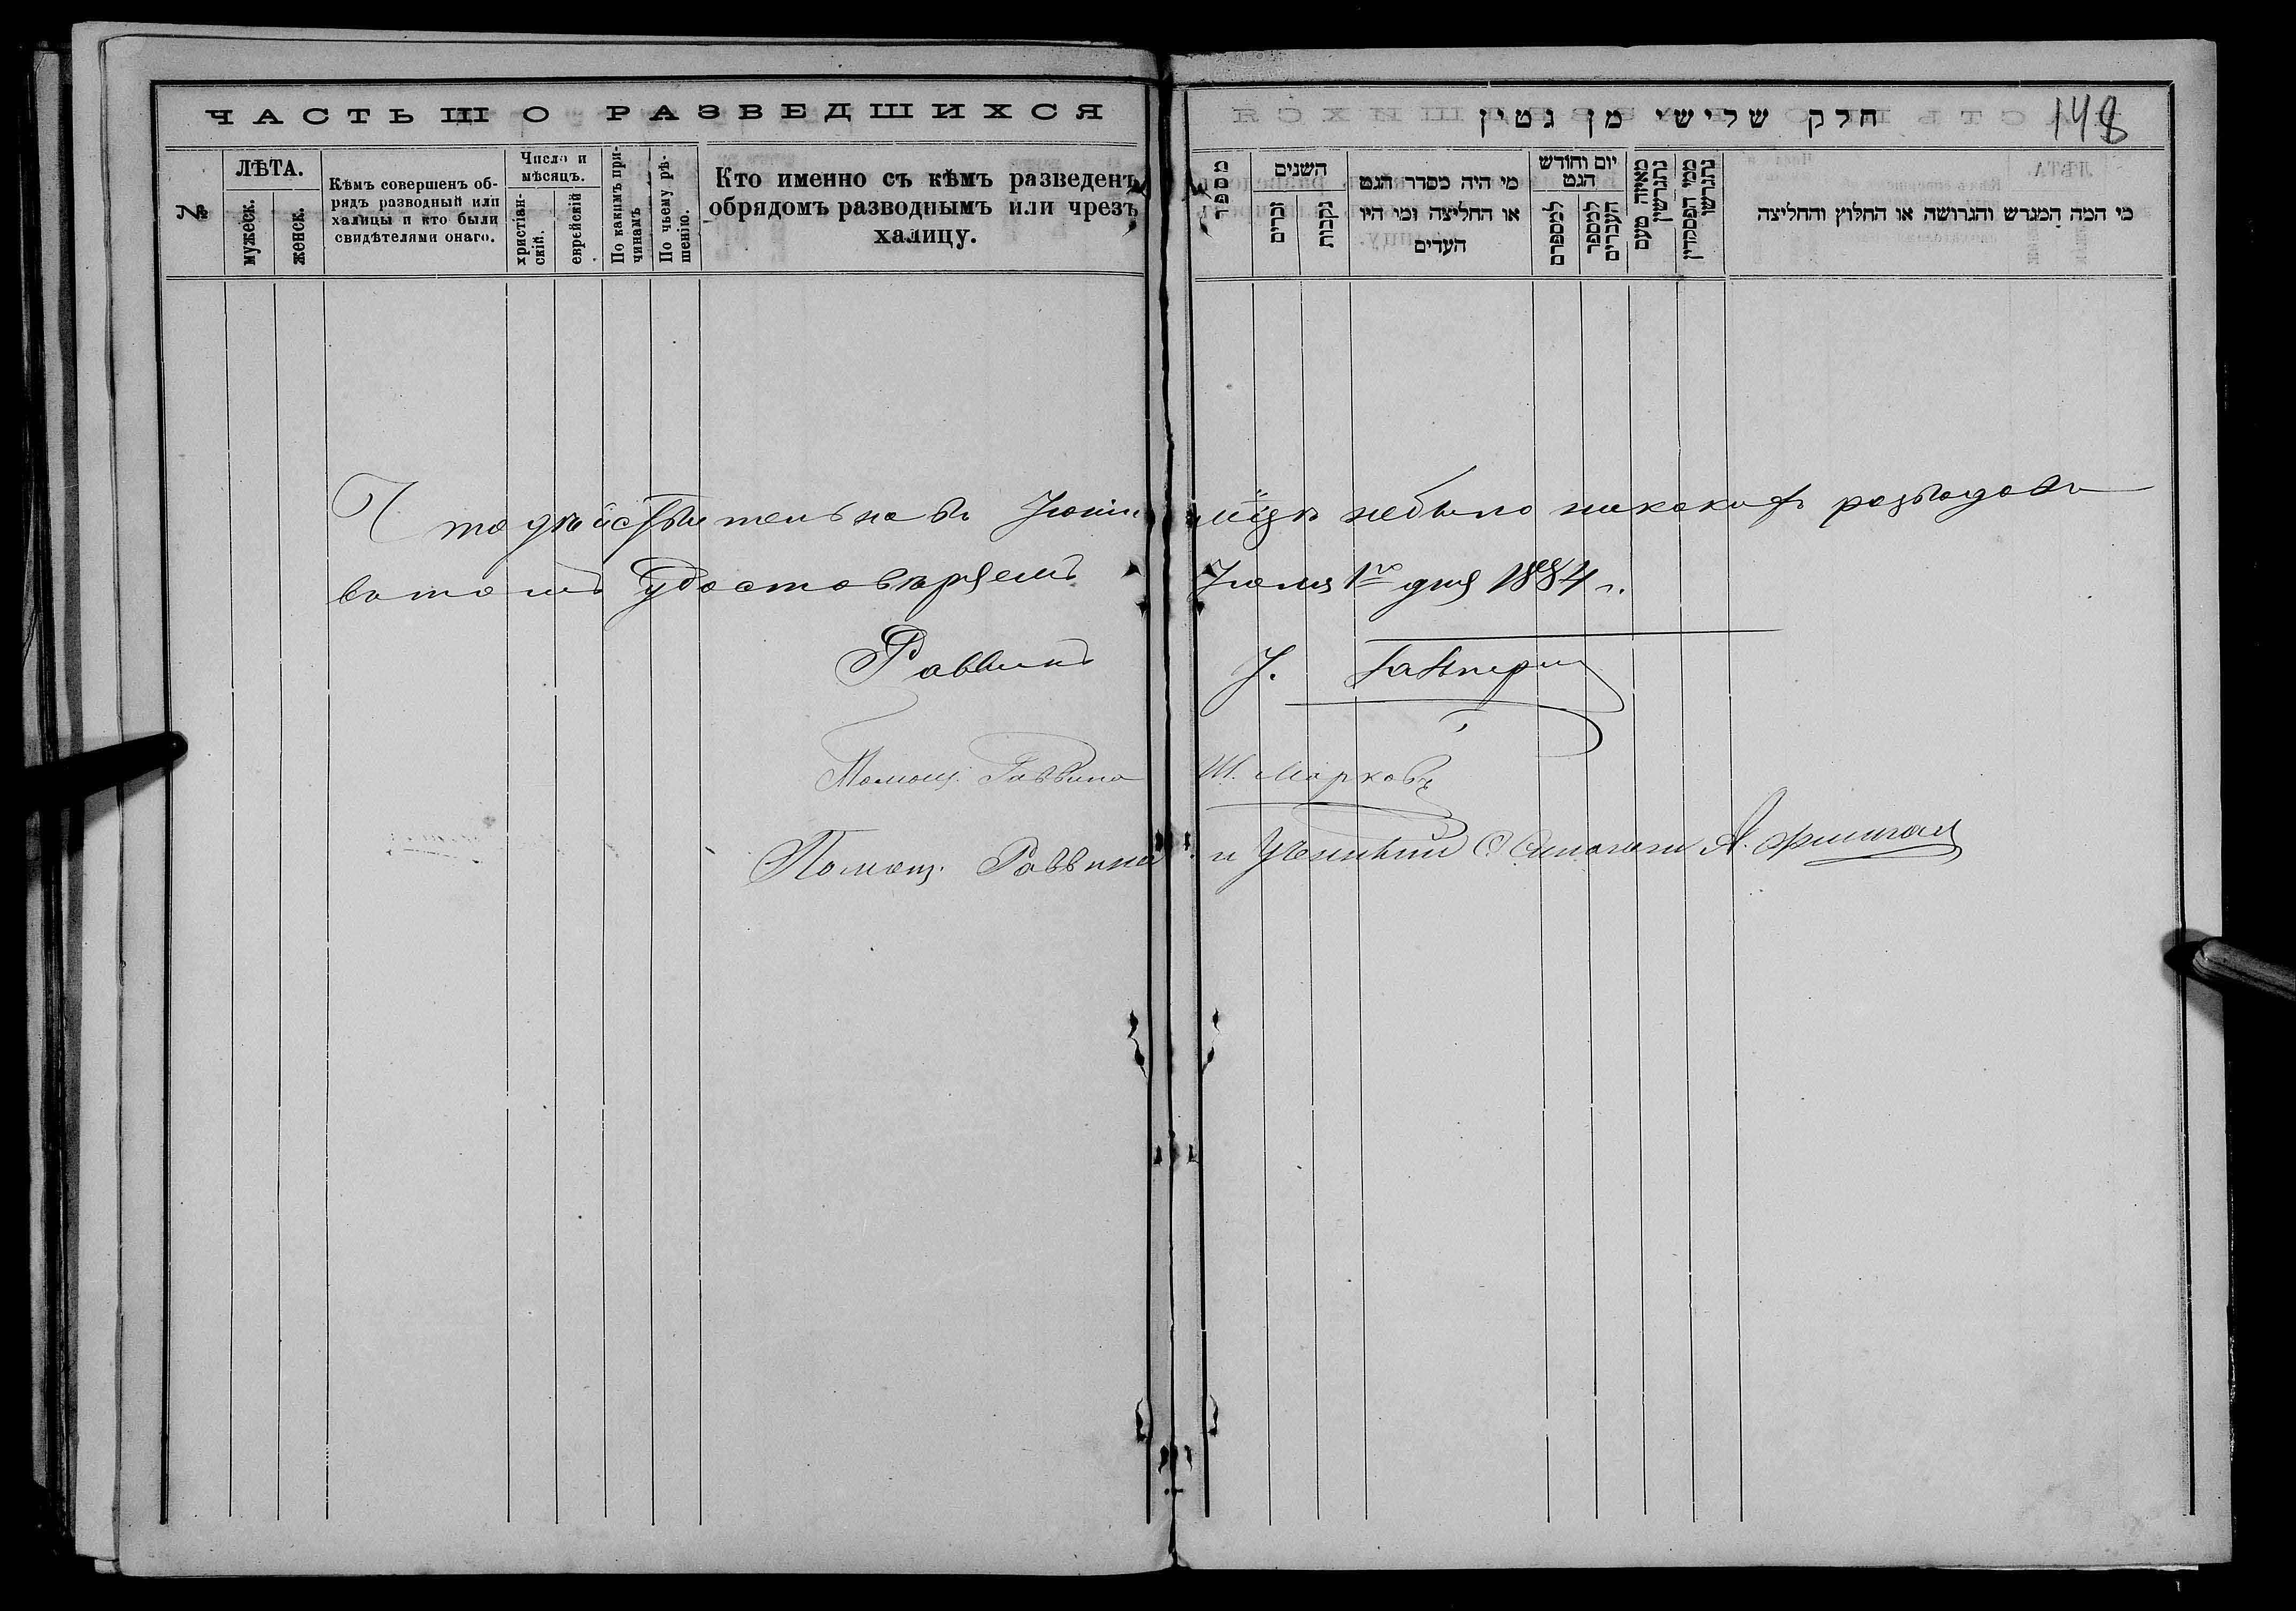 ЧАСТЬ III О РАЗВЕДШИХСЯ
№
ЛѢТА.
мужеск.
женск.
Кѣмъ совершенъ об-
рядъ разводный или
халицы и кто были
свидѣтелями онаго.
Число и
мѣсяцъ.
христіан-
скій.
еврейскій
По какимъ при-
чинамъ
По чьему рѣ-
шенію.
Кто именно съ кѣмъ разведенъ
обрядомъ разводнымъ или чрезъ
халицу.
148
חלק שלישי מן גטין
מספר
השנים
זכרים
נקבות
מי היה מסדר הגט
או החליצה ומי היו
העדים
יום וחודש
הגט
למספרם
למספר
העברים
מאיזה טעם
נתגרשו
ממי הפסקדין
נתגרשו
מי המה המגרש והגרושה או החלוץ והחליצה
Что дѣйствительно въ Іюни мцѣ небыло никакихъ разводовъ
вотомъ Удостовѣряемъ Іюля 1го дня 1884 г.
Раввинъ
Помощ. Раввина Ш. Марковъ
Помощ. Раввина и А. Фришман